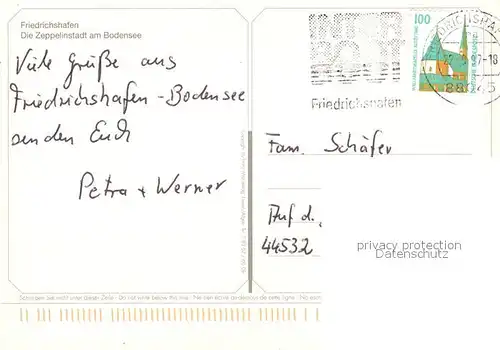 Friedrichshafen
Die Zeppelinstadt am Bodensee
Viele Grüße aus
Friedrichshafen-Bodensee
senden Euch
Petra + Werner
100
Friedrichshafen
Fam. Schäfer
Auf d.
44532
privacy protection
Datenschutz
Schreiben Sie nicht unter dieser Zeile - Do not write below this line - Ne rien écrire au-dessous de cette ligne - No esc